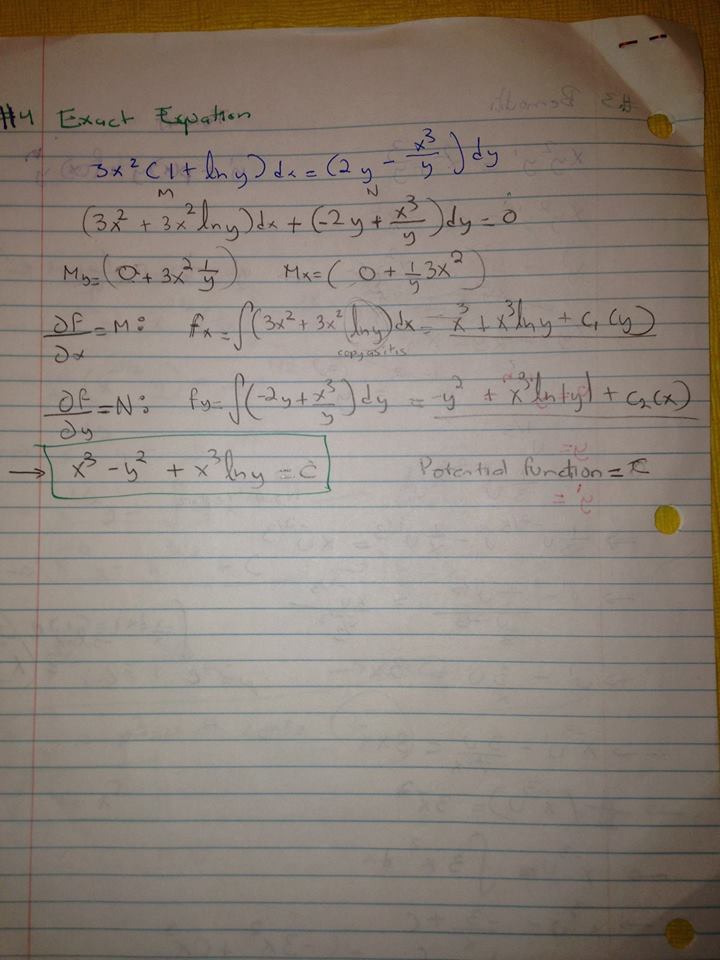 #4 Exact Equation
3x² (1 + ln y) dx = (2y - x³/y) dy
M N
(3x² + 3x² ln y) dx + (-2y + x³/y) dy = 0
My = (0 + 3x² 1/y) Mx = (0 + 1/y 3x²)
∂F/∂x = M: fx = ∫(3x² + 3x² ln y) dx = x³ + x³ ln y + C₁(y)
copy as it is
∂F/∂y = N: fy = ∫(-2y + x³/y) dy = -y² + x³ ln|y| + C₂(x)
→ x³ - y² + x³ ln y = C Potential function = C